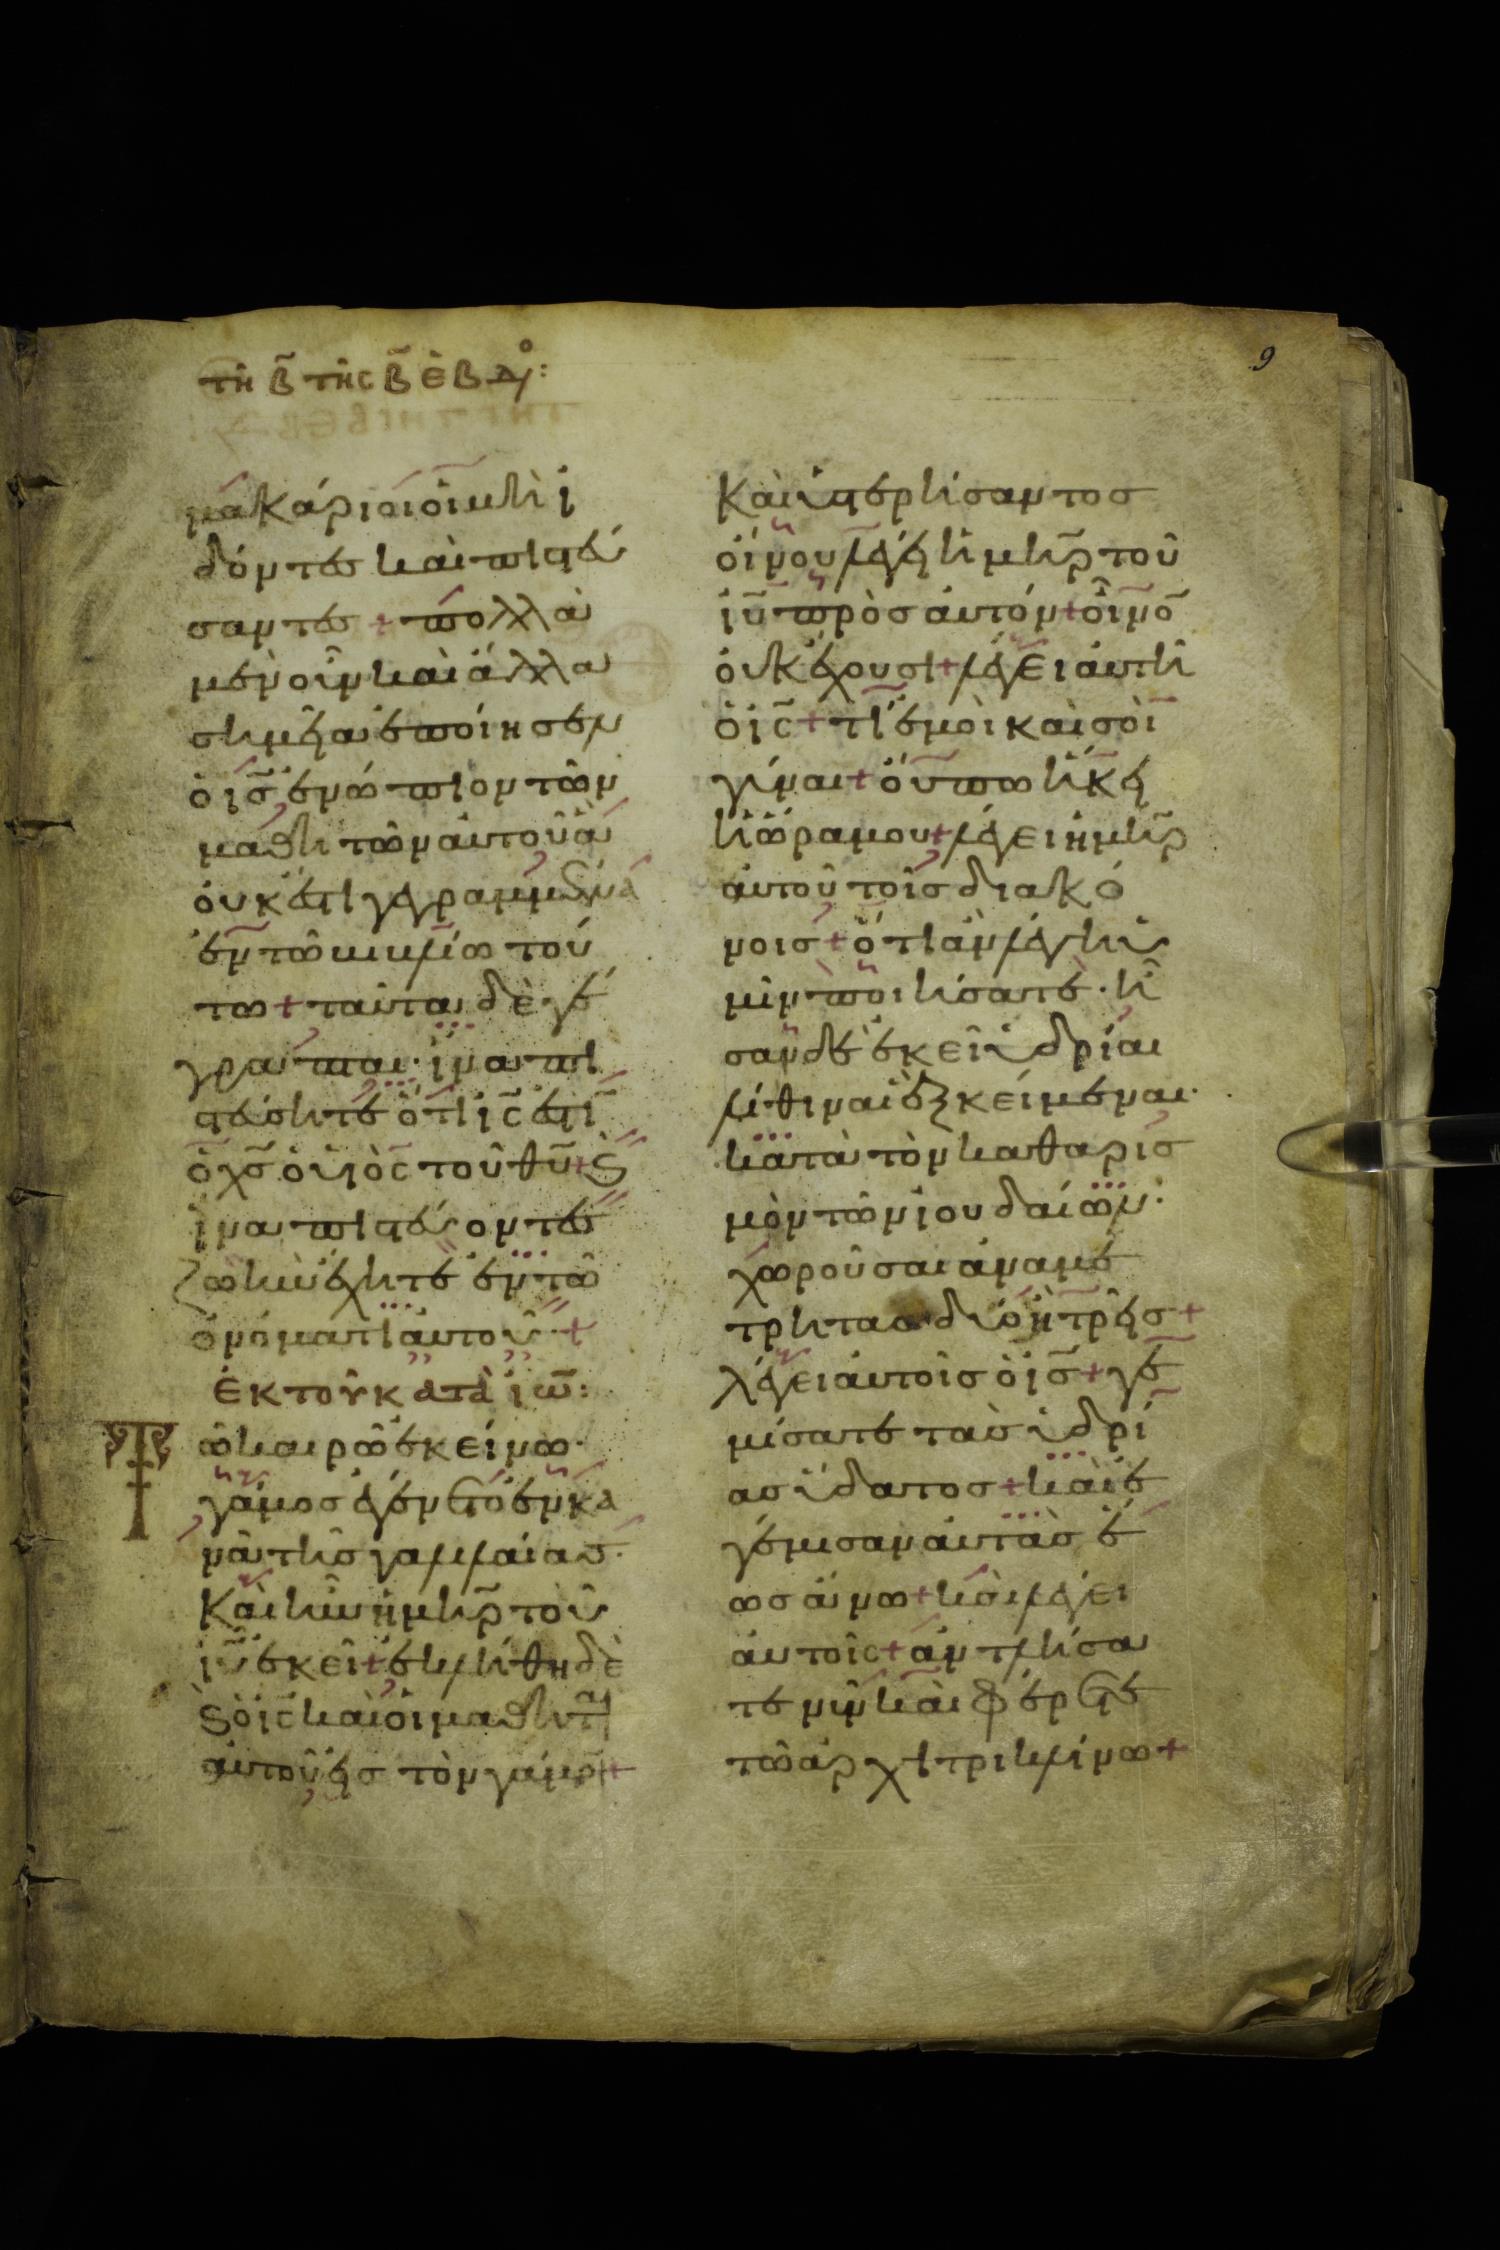 9
τῆ β̄ τῆς β̄ ἑβδο:
μακάριοι οἱ μὴ ἰ
δόντες καὶ πιστεύ
σαντες + πολλὰ
μὲν οὖν καὶ ἄλλα
σημεῖα ἐποίησεν
ὁ ις̄ ἐνώπιον τῶν
μαθητῶν αὐτοῦ ἃ
οὐκ ἔστι γεγραμμένα
ἐν τῶ βιβλίω τού
τω + ταῦτα δὲ γέ
γραπται· ἵνα πι
στεύσητε ὅτι ις̄ ἐστὶ
ὁ χς̄ ὁ υἱὸς τοῦ θῡ + ϗ
ἵνα πιστεύοντες
ζωὴν ἔχητε ἐν τῶ
ὀνόματι αὐτοῦ· +
ἐκ τοῦ κατὰ ἰω̄:
Τῶ καιρῶ ἐκείνω·
γάμος ἐγένετο ἐν κα
νᾶ τῆς γαλιλαίας·
Καὶ ἦν ἡ μηρ̄ τοῦ
ιῡ ἐκεῖ + ἐκλήθη δὲ
ϗ ὁ ις̄ καὶ οἱ μαθηταὶ
αὐτοῦ εἰς τὸν γάμον +
Καὶ ὑστερήσαντος
οἴνου λέγει ἡ μηρ̄ τοῦ
ιῡ πρὸς αὐτόν + οἶνο̄
οὐκ ἔχουσι + λέγει αὐτῆ
ὁ ις̄ + τί ἐμοὶ καὶ σοὶ
γύναι + οὔπω ἥκει
ἡ ὥρα μου + λέγει ἡ μηρ̄
αὐτοῦ τοῖς διακό
νοις + ὅτι ἂν λέγη ὑ
μῖν ποιήσατε· ἦ
σαν δὲ ἐκεῖ ὑδρίαι
λίθιναι ἓξ κείμεναι·
κατὰ τὸν καθαρισ
μὸν τῶν ἰουδαίων·
χωροῦσαι ἀνὰ με
τρητὰς δύο ἢ τρεῖς +
λέγει αὐτοῖς ὁ ις̄ + γε
μίσατε τὰς ὑδρί
ας ὕδατος + καὶ ἐ
γέμισαν αὐτὰς ἕ
ως ἄνω + καὶ λέγει
αὐτοῖς + ἀντλήσα
τε νῦν καὶ φέρετε
τῶ ἀρχιτρικλίνω +